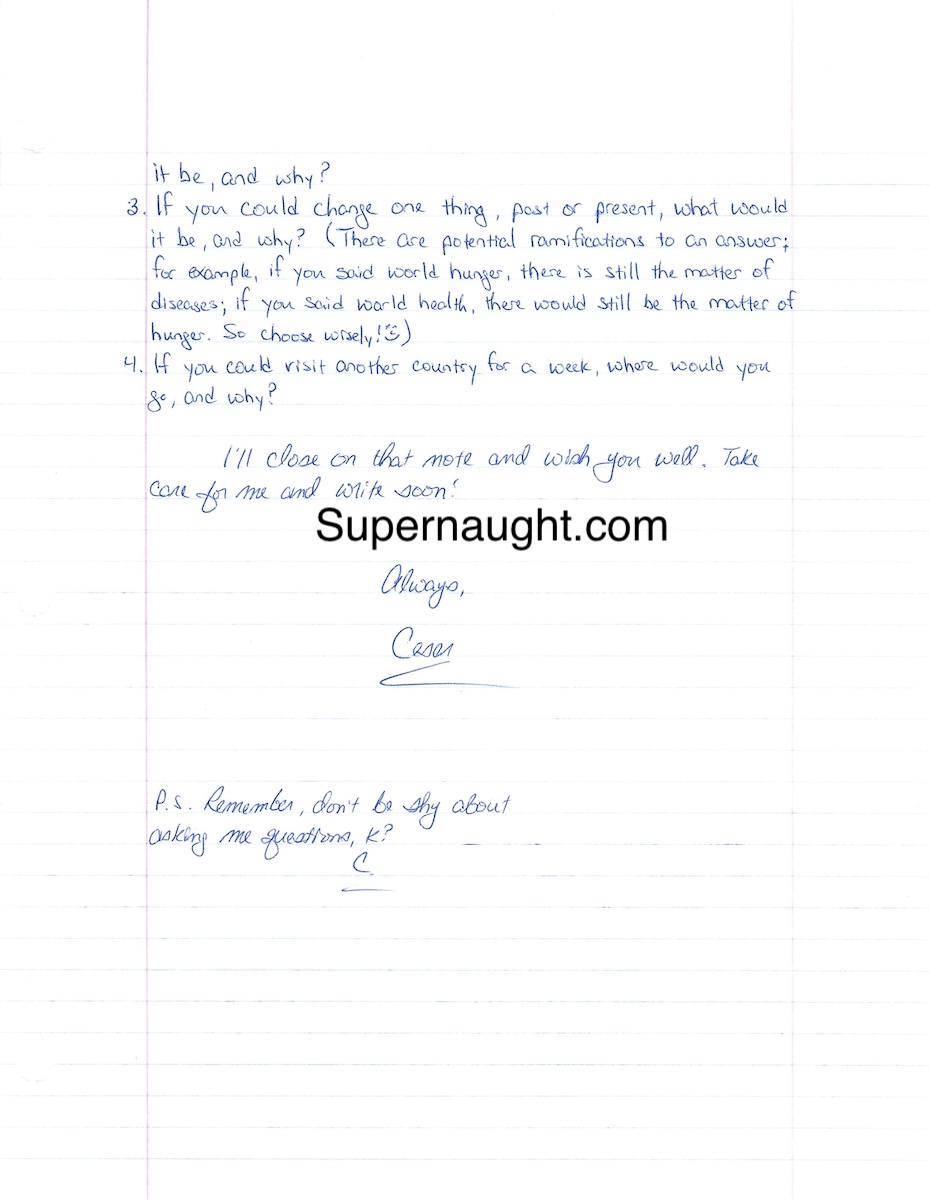 it be, and why?
3. If you could change one thing, past or present, what would
it be, and why? (There are potential ramifications to an answer;
for example, if you said world hunger, there is still the matter of
diseases; if you said world health, there would still be the matter of
hunger. So choose wisely!)
4. If you could visit another country for a week, where would you
go, and why?
I'll close on that note and wish you well. Take
care for me and write soon!
Supernaught.com
Always,
P.S. Remember, don't be shy about
asking me questions, K?
C.